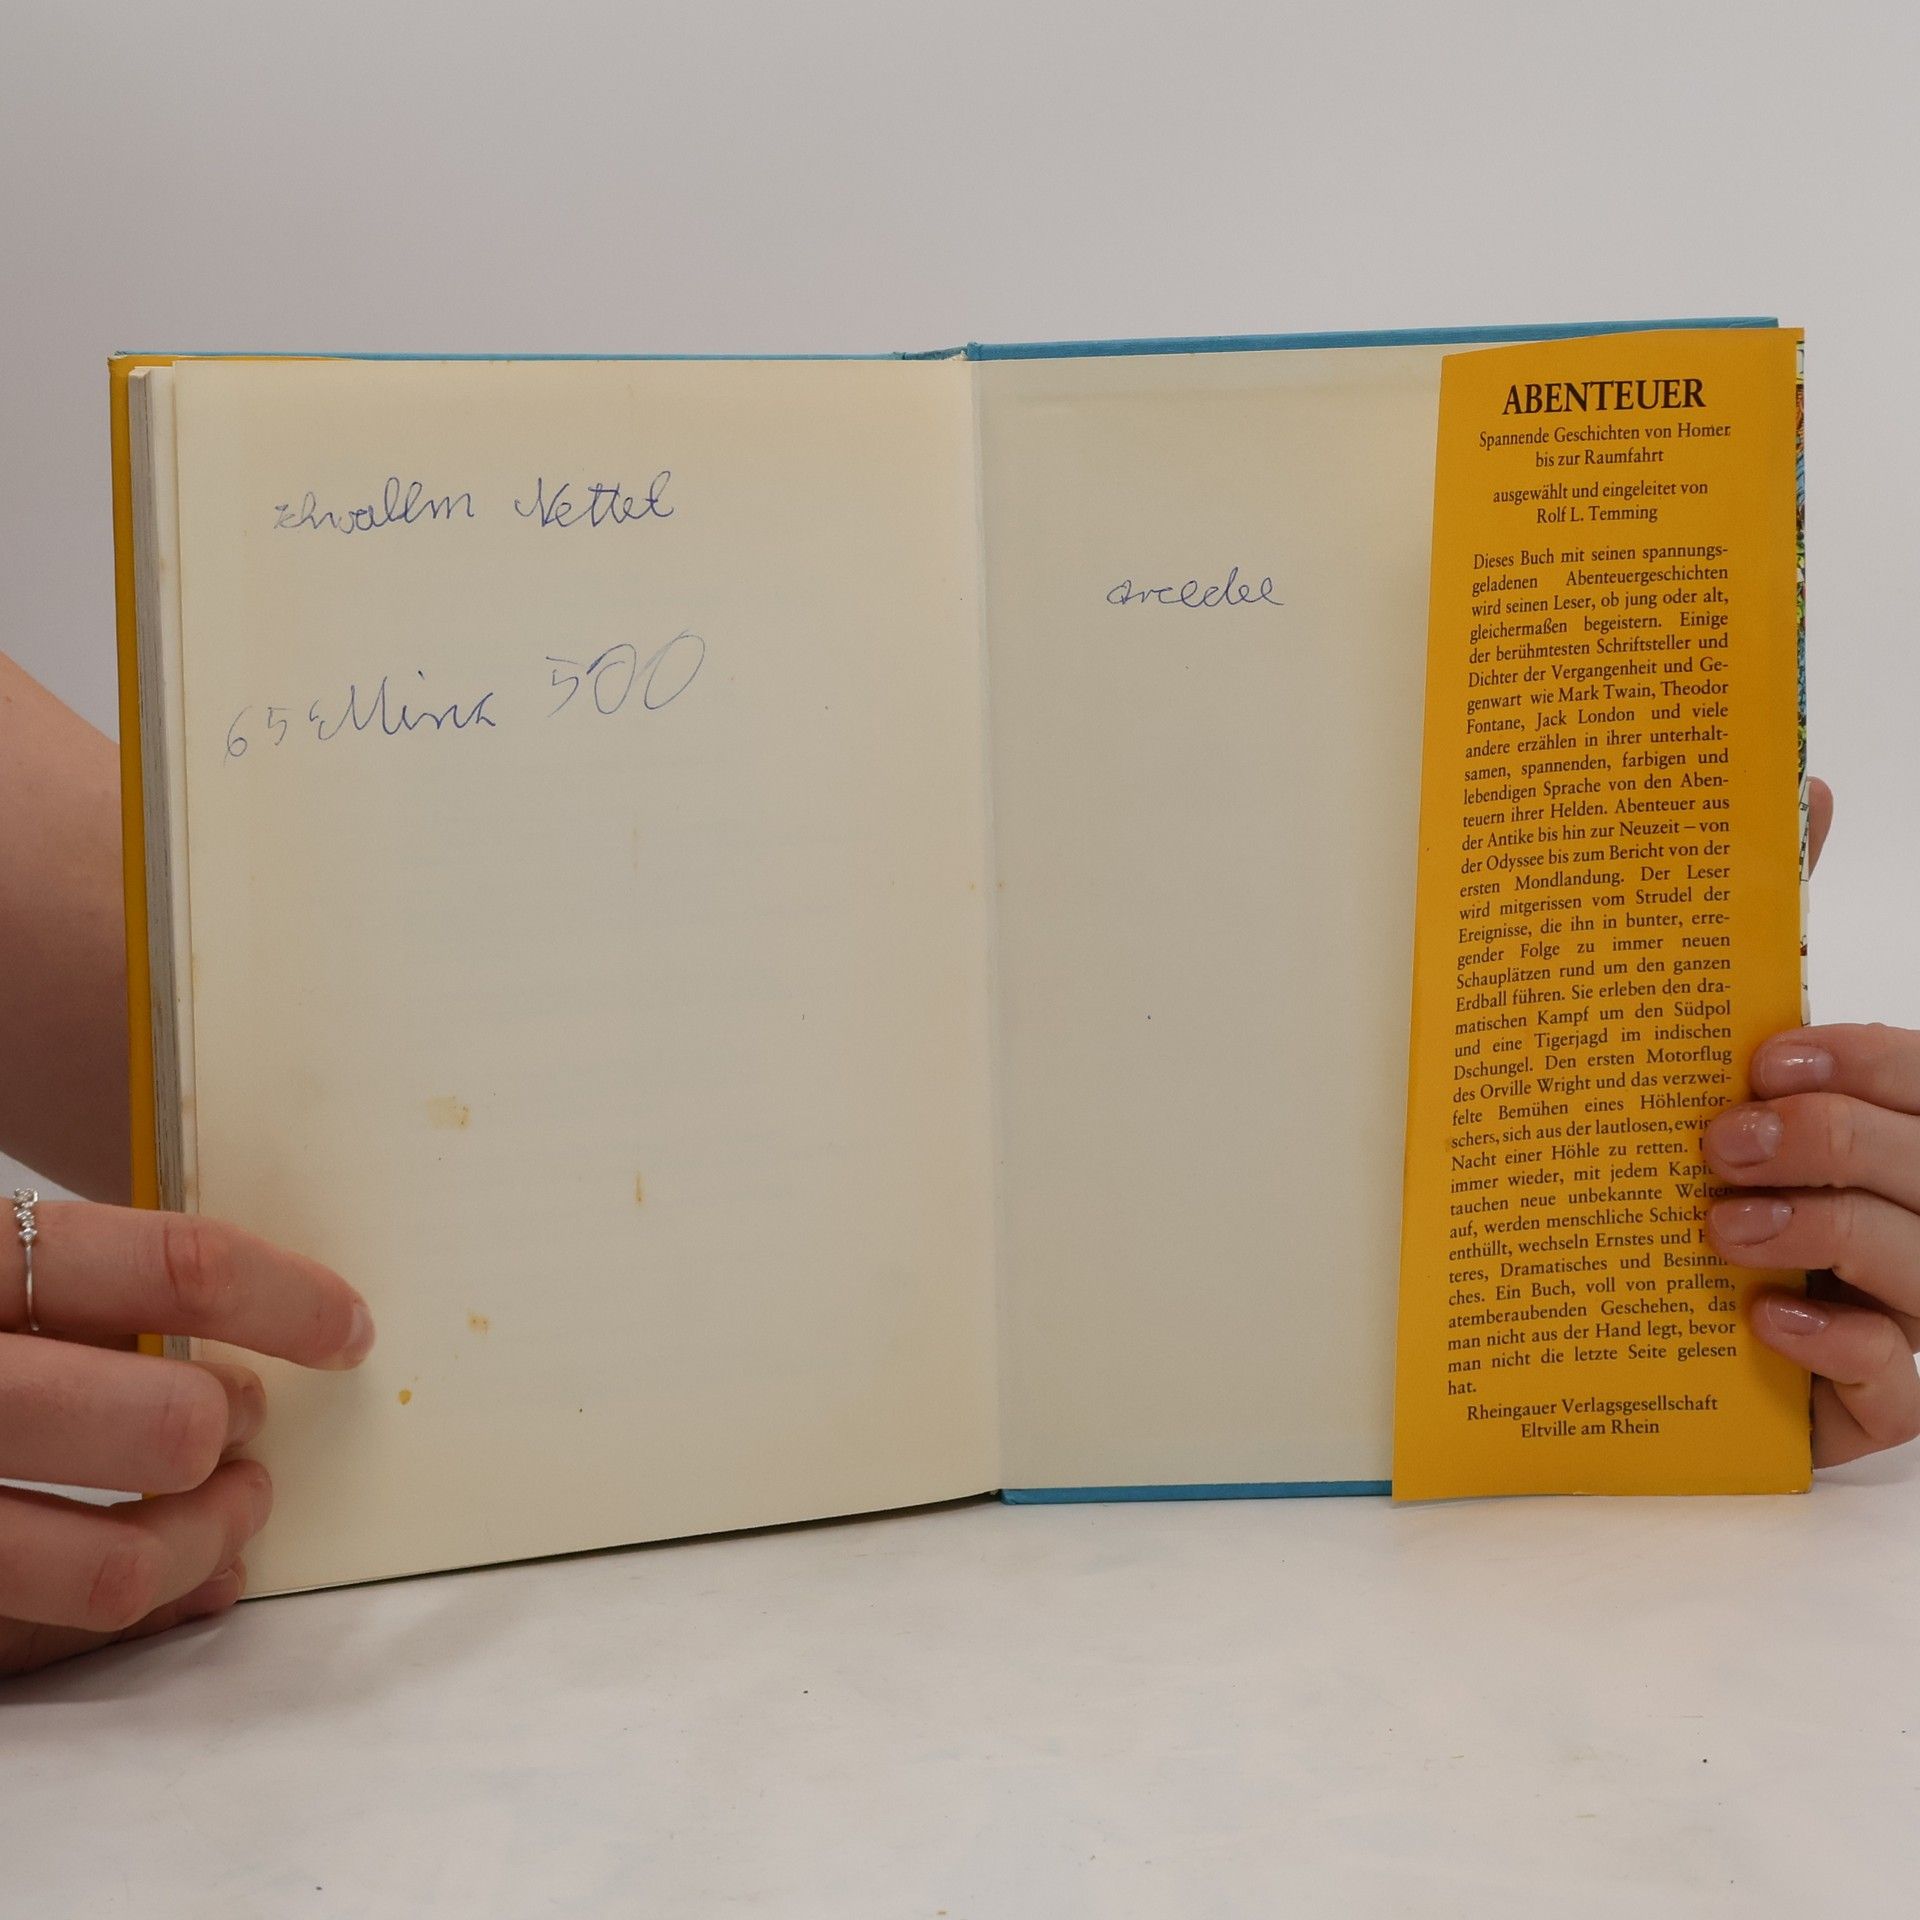 Nettel
65 Mina 500
ABENTEUER
Spannende Geschichten von Homer
bis zur Raumfahrt
ausgewählt und eingeleitet von
Rolf L. Temming
Dieses Buch mit seinen spannungs-
geladenen Abenteuergeschichten
wird seinen Leser, ob jung oder alt,
gleichermaßen begeistern. Einige
der berühmtesten Schriftsteller und
Dichter der Vergangenheit und Ge-
genwart wie Mark Twain, Theodor
Fontane, Jack London und viele
andere erzählen in ihrer unterhalt-
samen, spannenden, farbigen und
lebendigen Sprache von den Aben-
teuern ihrer Helden. Abenteuer aus
der Antike bis hin zur Neuzeit – von
der Odyssee bis zum Bericht von der
ersten Mondlandung. Der Leser
wird mitgerissen vom Strudel der
Ereignisse, die ihn in bunter, erre-
gender Folge zu immer neuen
Schauplätzen rund um den ganzen
Erdball führen. Sie erleben den dra-
matischen Kampf um den Südpol
und eine Tigerjagd im indischen
Dschungel. Den ersten Motorflug
des Orville Wright und das verzwei-
felte Bemühen eines Höhlenfor-
schers, sich aus der lautlosen,
Nacht einer Höhle zu retten.
immer wieder, mit jedem
tauchen neue unbekannte Welten
auf, werden menschliche
enthüllt, wechseln Ernstes und
teres, Dramatisches und
ches. Ein Buch, voll von prallem,
atemberaubenden Geschehen, das
man nicht aus der Hand legt, bevor
man nicht die letzte Seite gelesen
hat.
Rheingauer Verlagsgesellschaft
Eltville am Rhein